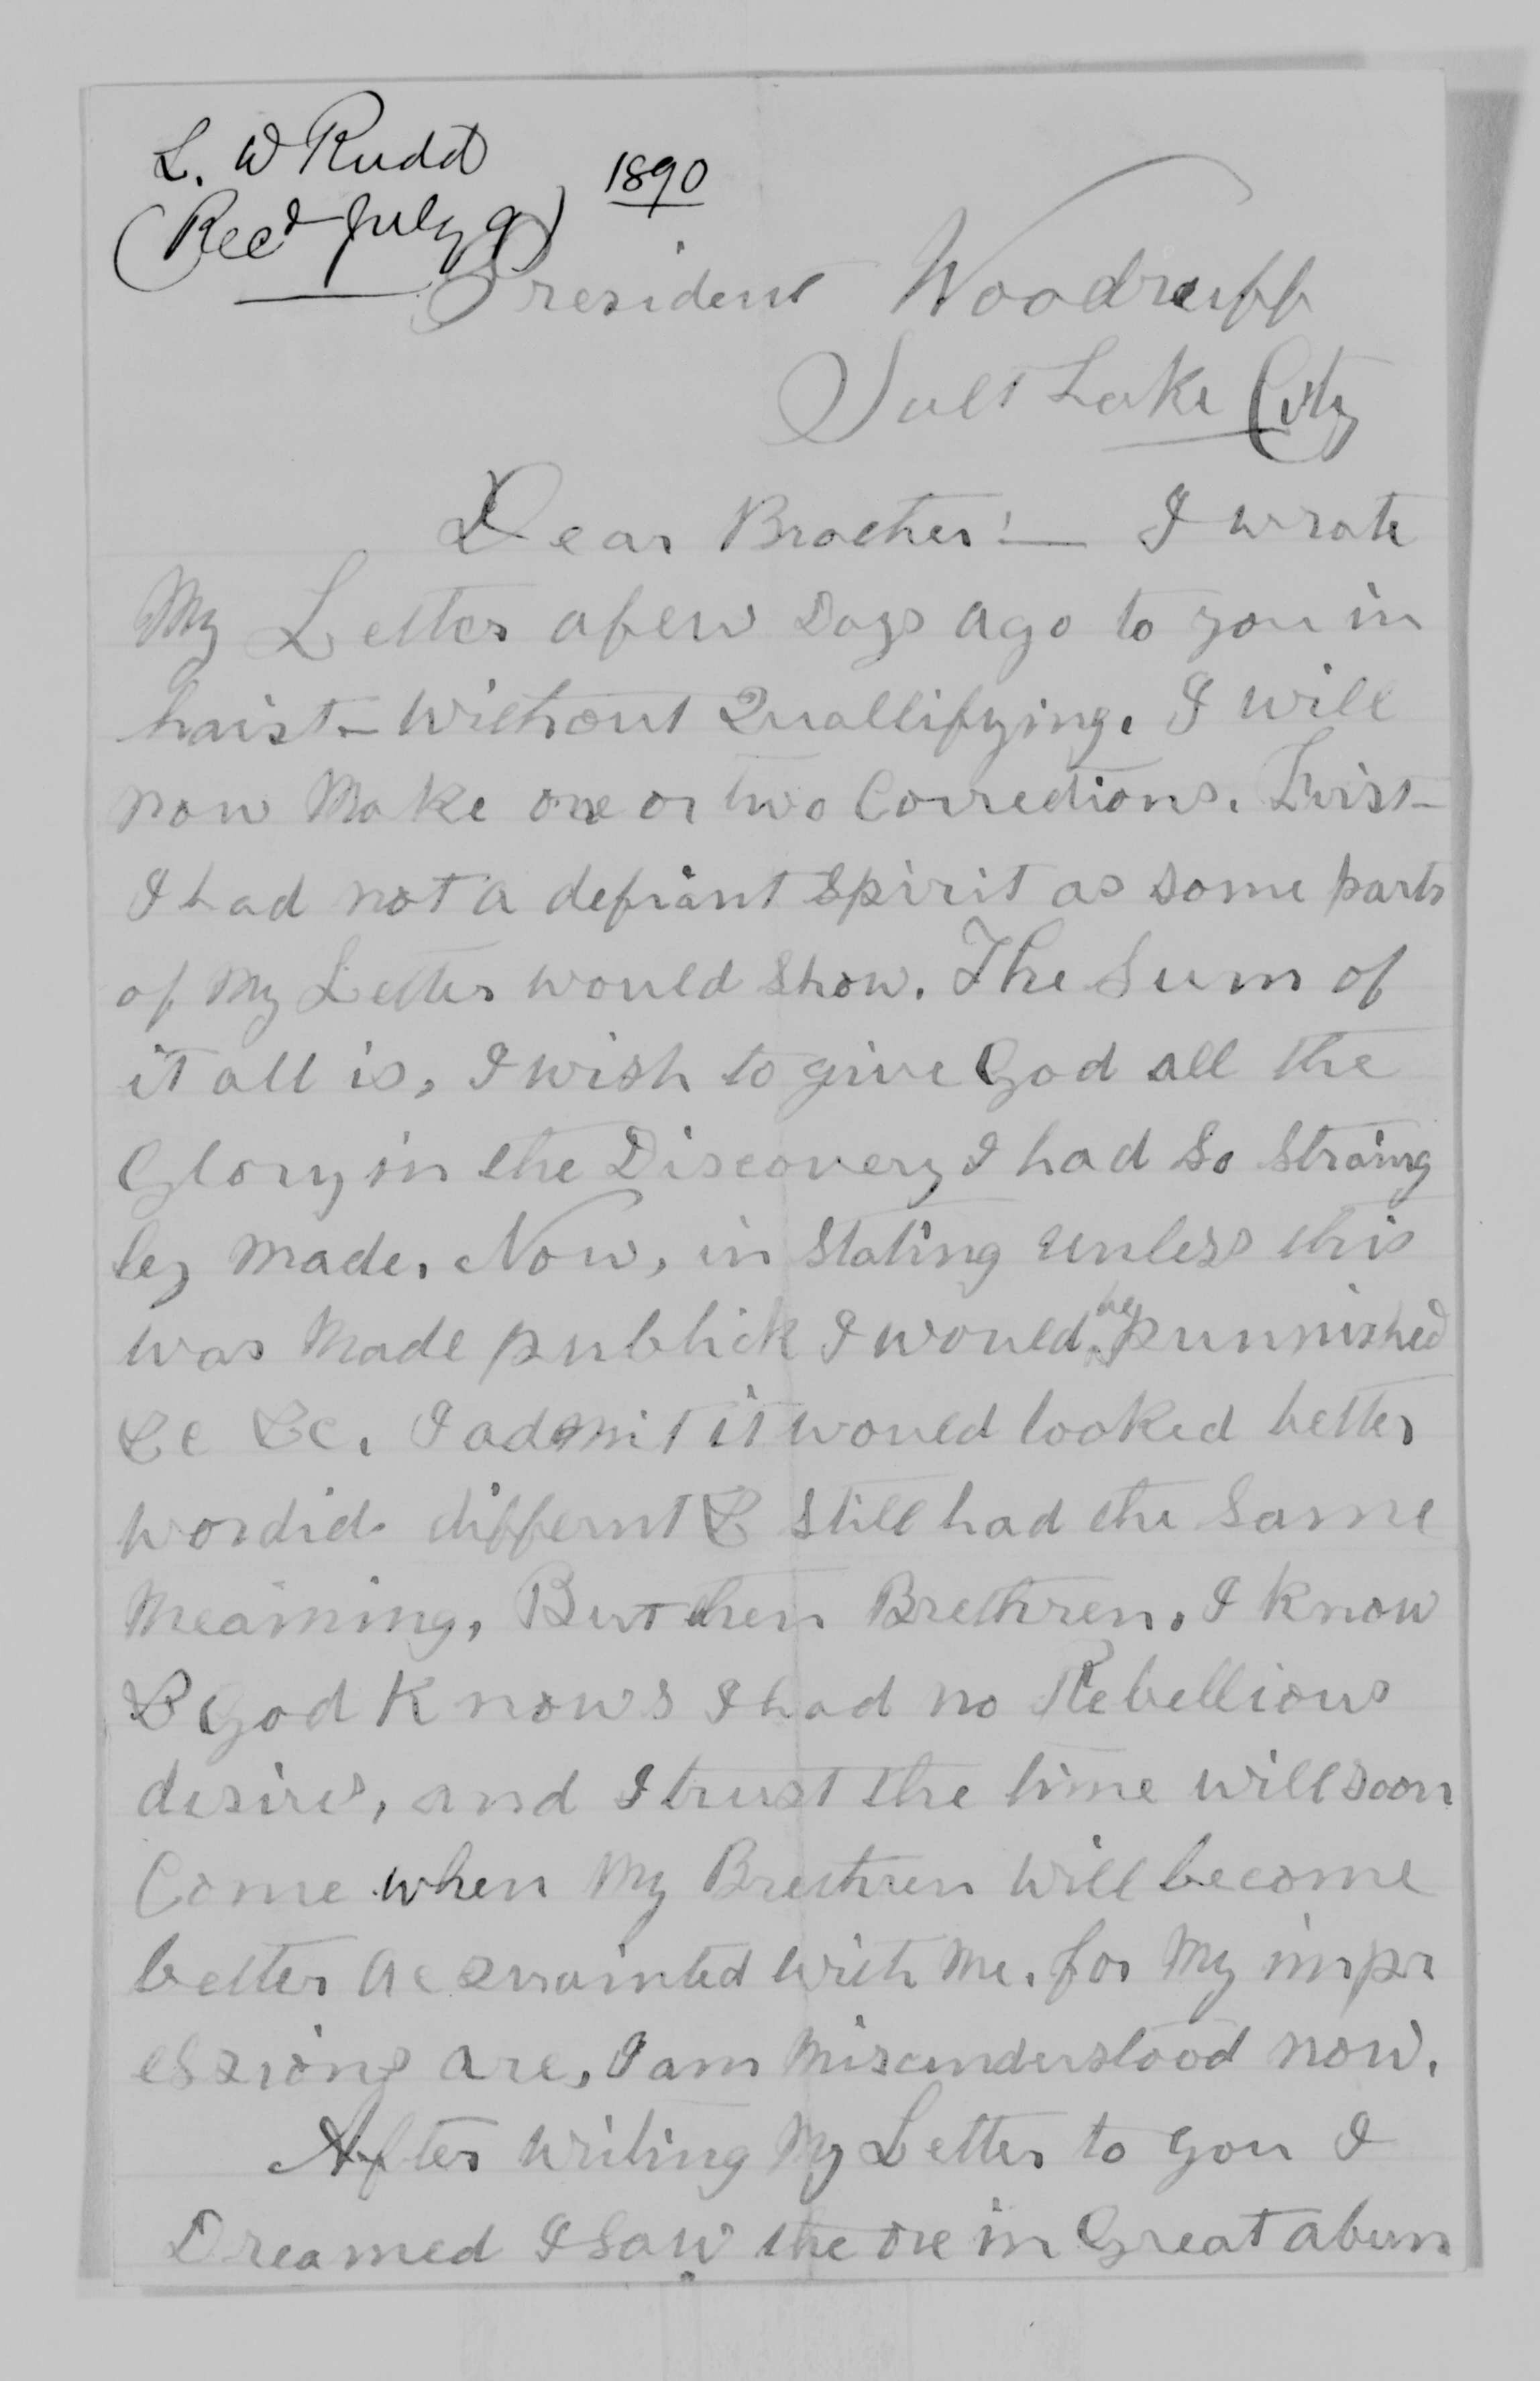 L. W Rudd
(Recd July 9) 1890
President Woodruff
Salt Lake City
Dear Brother:— I wrote
My Letter a few Days ago to you in
haist— Without Quallifying. I will
now Make one or two Corrections. First—
I had not a defiant Spirit as some parts
of My Letter would Show. The Sum of
it all is, I wish to give God all the
Glory in the Discovery I had So Straing
ley made. Now, in Stating unless this
was Made publick I would be punnished
&c &c. I admit it would looked better
wordid differnt & Still had the Same
Meaining, But then Brethren. I know
& God Knows I had no Rebellious
desires, and I trust the time will soon
Come when My Brethren will become
better acquainted with Me. for My impr
essions are, I am Misunderstood now.
After writing My Letter to you I
Dreamed I Saw the ore in Great abun